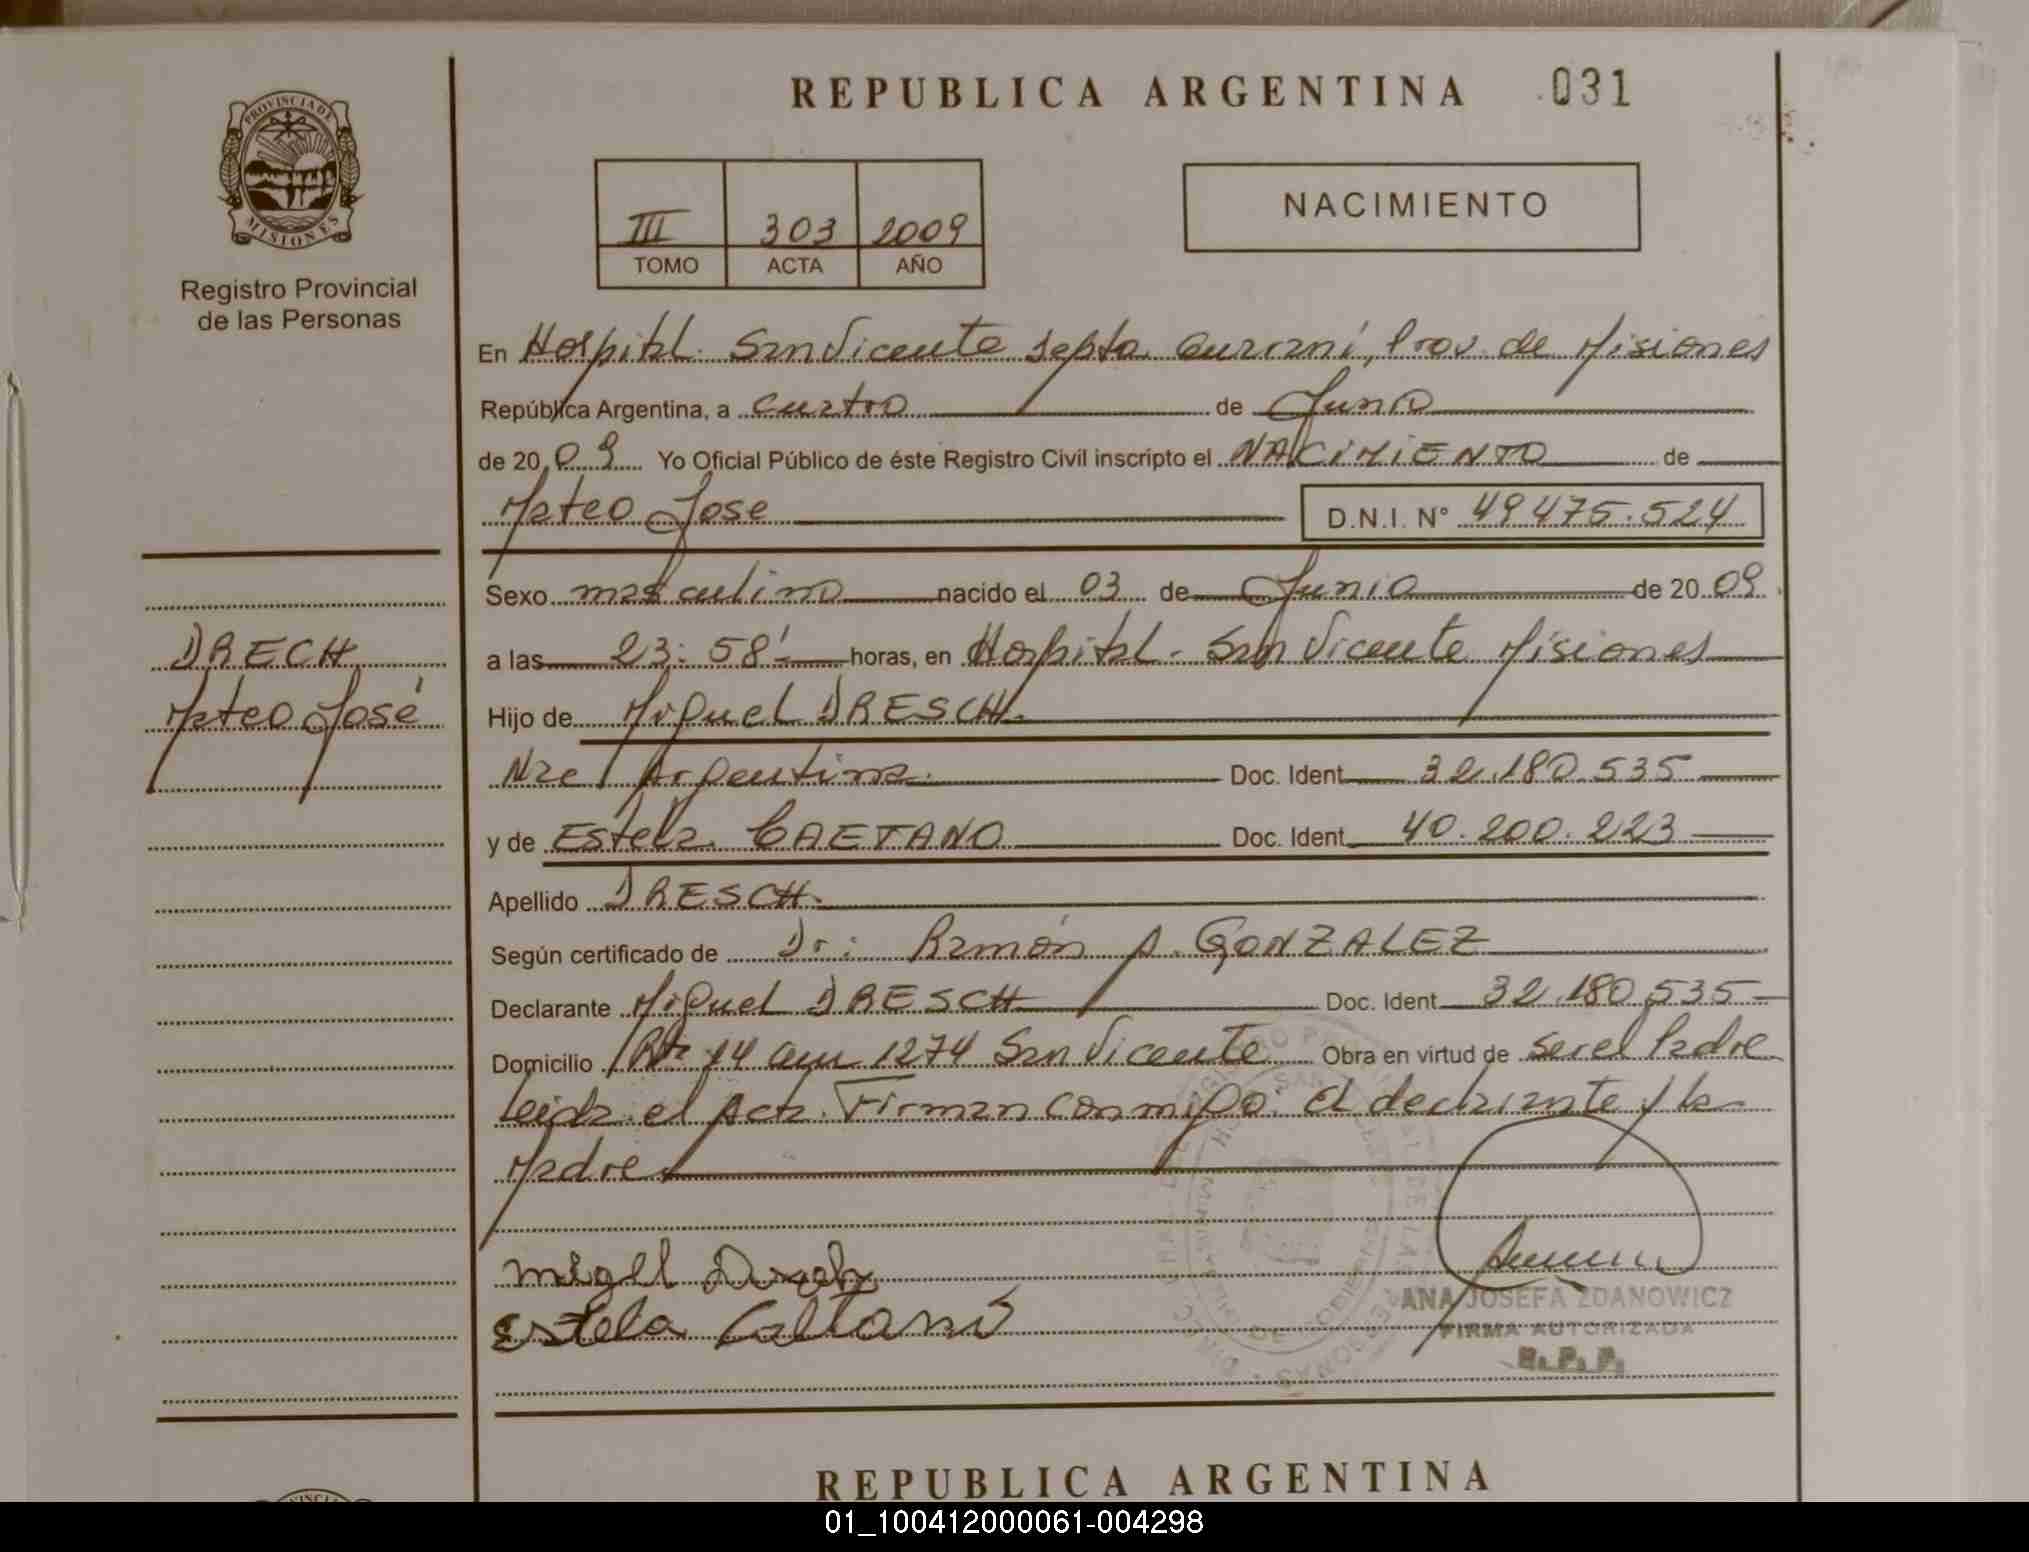 REPUBLICA ARGENTINA 031
PROVINCIA DE
MISIONES
Registro Provincial
de las Personas
III 303 2009
TOMO ACTA AÑO
NACIMIENTO
En Hospital San Vicente Depto. Guaraní, Prov. de Misiones
República Argentina, a cuatro de Junio
de 2009 Yo Oficial Público de éste Registro Civil inscripto el NACIMIENTO de
Mateo Jose D.N.I. N° 49475.524
Sexo masculino nacido el 03 de Junio de 2009.
DRECH
Mateo José
a las 23:58' horas, en Hospital - San Vicente Misiones
Hijo de Miguel DRESCH.
Nac Argentina. Doc. Ident 32.180.535
y de Estela CAETANO Doc. Ident 40.200.223
Apellido DRESCH.
Según certificado de Dr: Ramón A. GONZALEZ
Declarante Miguel DRESCH Doc. Ident 32.180.535
Domicilio Rta 14 1274 San Vicente Obra en virtud de ser el Padre
Leida el Acta. Firman conmigo el declarante y la
Madre.
migel Dresch
Estela
ANA JOSEFA ZDANOWICZ
FIRMA AUTORIZADA
R.P.P.
REPUBLICA ARGENTINA
01_100412000061-004298